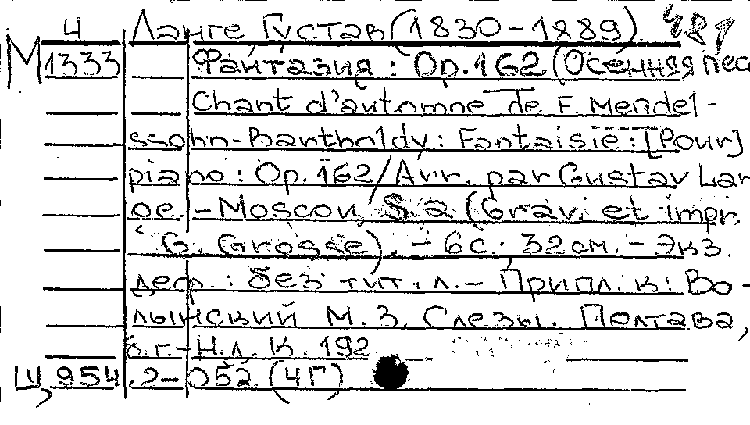 Ч Ланге, Густав (1830-1889) 481
М 1333 Фантазия: Op. 162 (Осенняя пес
Chant d'automne de F. Mendel-
ssohn-Bartholdy: Fantaisie: [Pour]
piano: Op. 162/Arr. par Gustav Lan
ge. - Moscou, S. a (Grav. et impr.
G. Grosse). - 6 с.; 32 см. - Экз.
деф.: без тит. л. - Припл. к: Во-
лынский М. З. Слезы. Полтава,
б.г. - Н.л. К. 192
Ц, 954.2-052 (4Г)